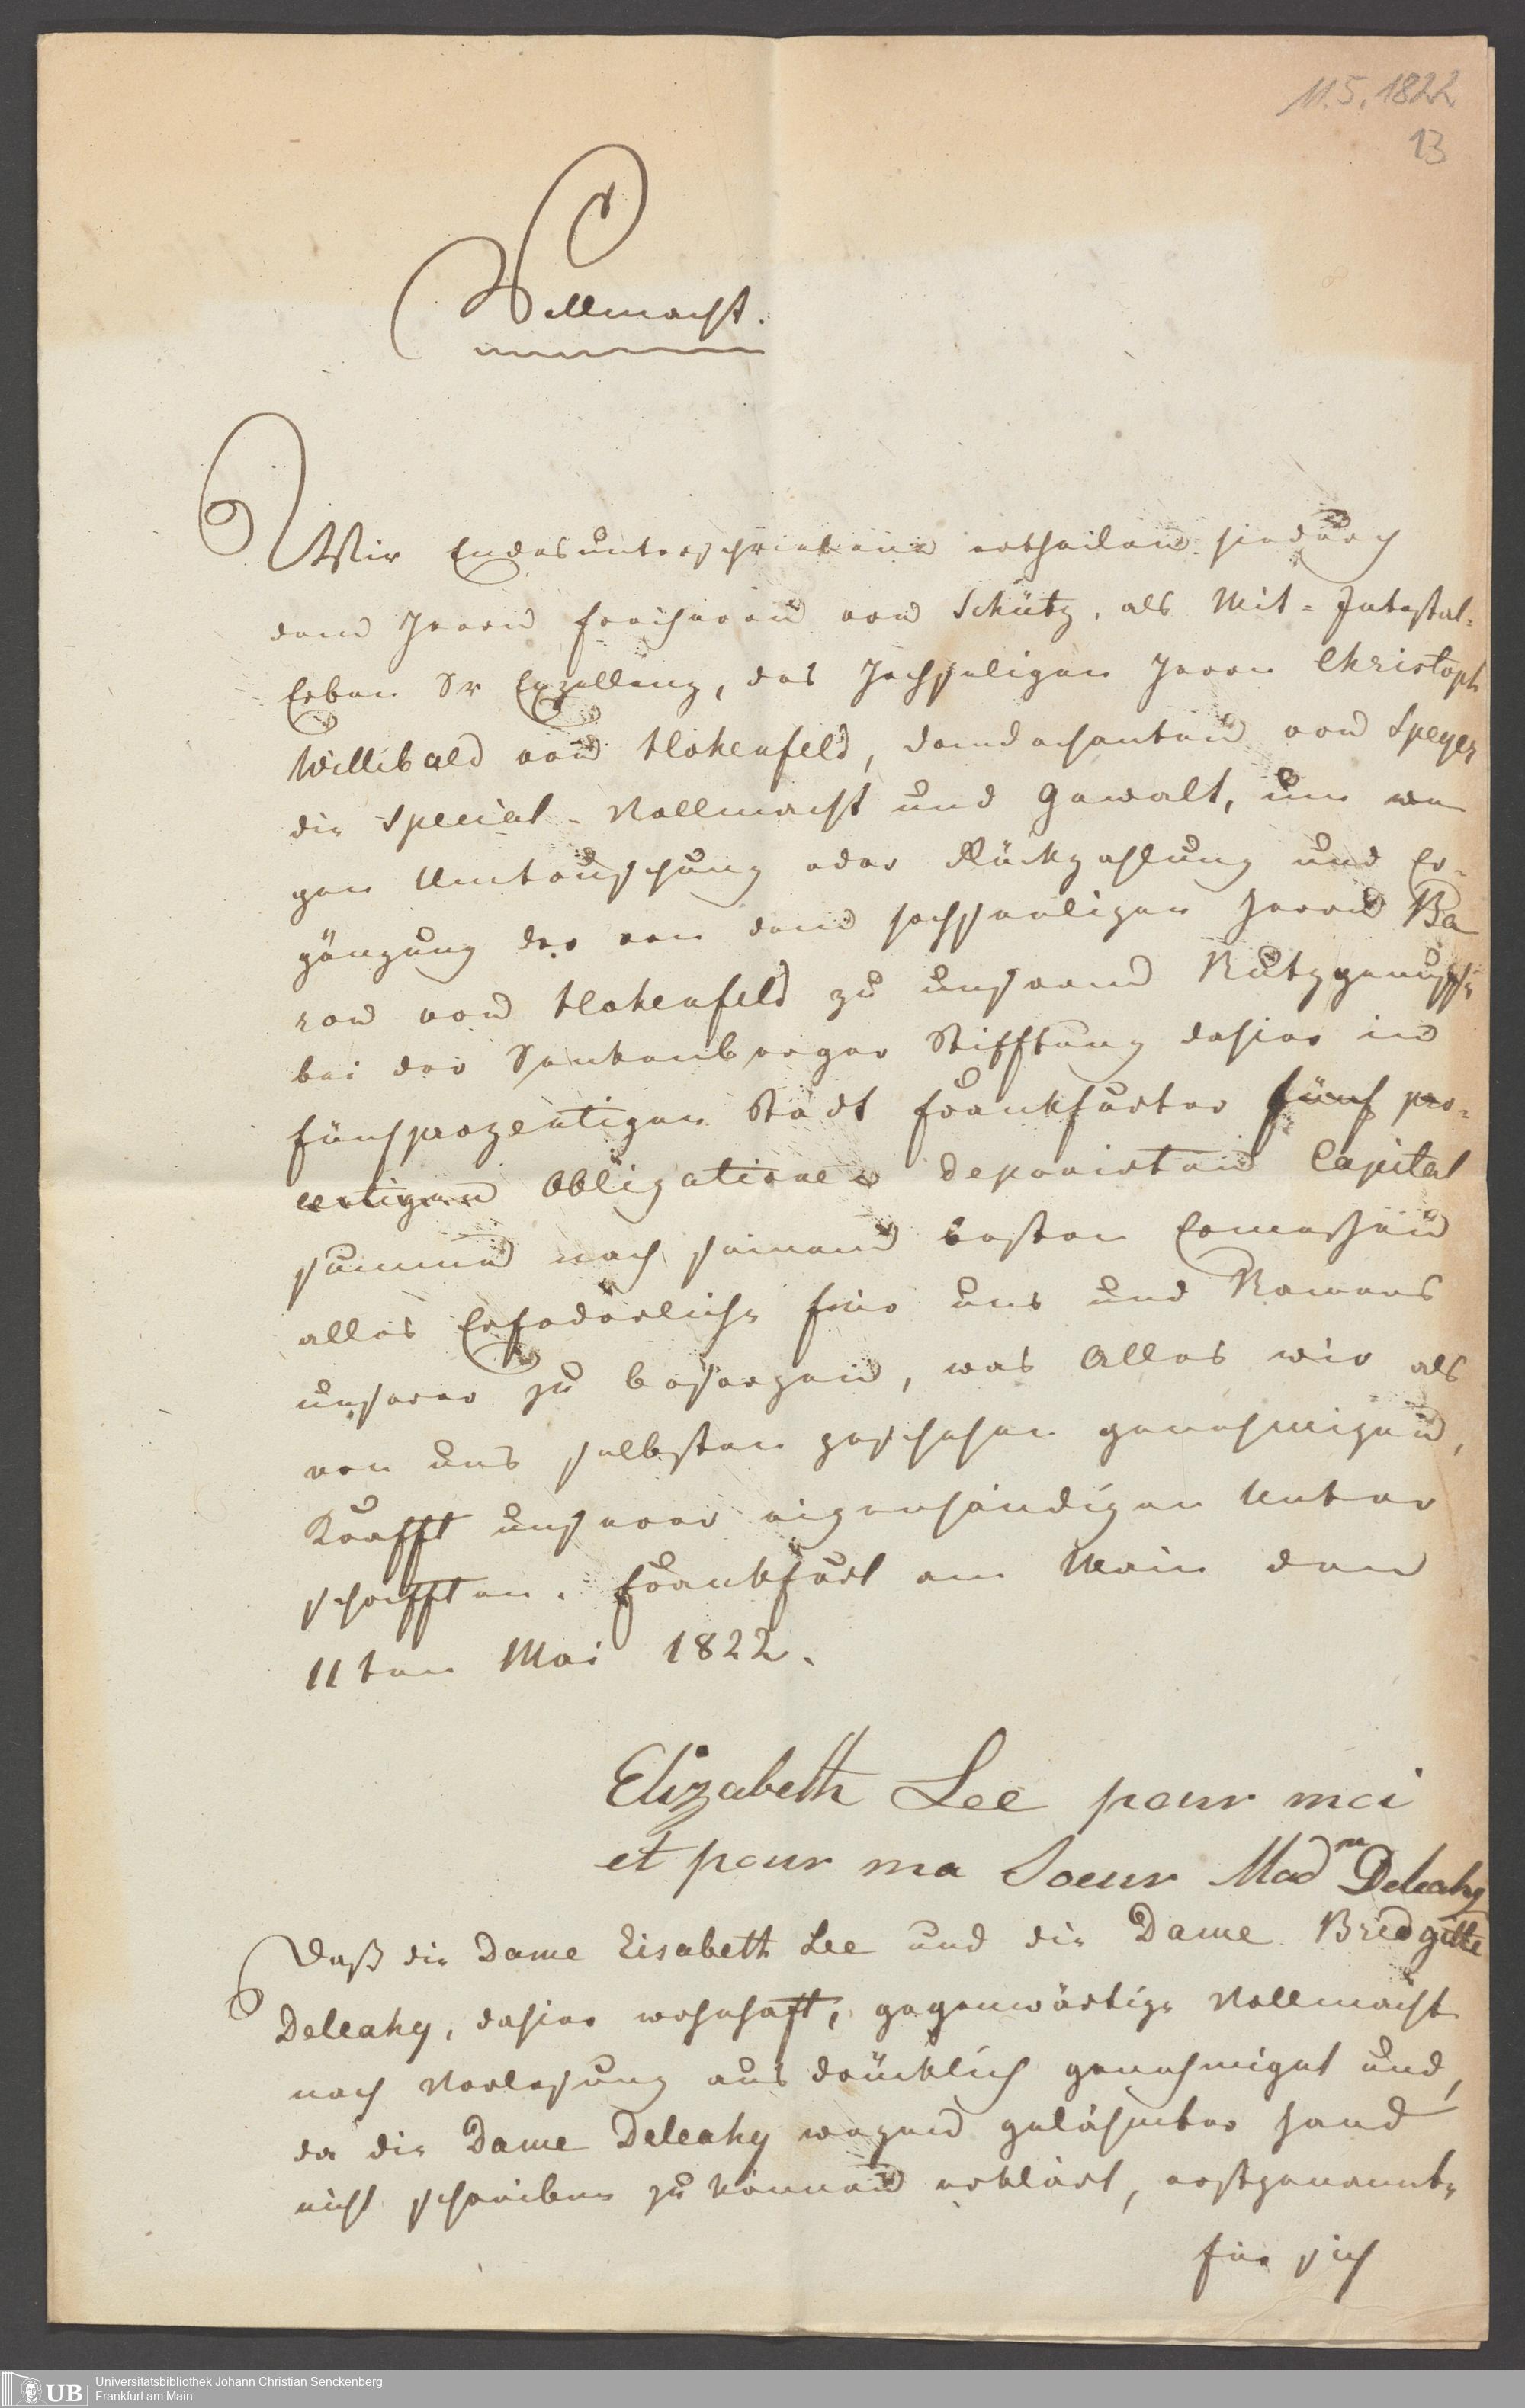 11.5.1822
13
Vollmacht.
Wir Endesunterschriebene ertheilen hiedurch
dem Herrn Freiherrn von Schütz, als Mit-Intestat-
Erben Sr Exzellenz, des Hochseligen Herrn Christoph
Willibald von Hohenfeld, Domdechanten von Speyer
die Special-Vollmacht und Gewalt, um we
gen Umtauschung oder Rückzahlung und Er-
gänzung der von dem hochseeligen Herrn Ba
ron von Hohenfeld zu unserm Nutzgenusse
bei der Senkenberger Stifftung dahier in
fünfprozentigen Stadt Frankfurter fünf pro-
centigen Obligationen deponirten Capital
summe nach seinem besten Ermessen
alles Erfoderliche für uns und Namens
unserer zu besorgen, was Alles wir als
von uns selbsten geschehen genehmigen,
Krafft unserer eigenhändigen Unter
schrifften. Frankfurt am Main den
11ten Mai 1822.
Elizabeth Lee pour moi
et pour ma Soeur Mad.m Deleahy
Daß die Dame Elisabeth Lee und die Dame Bridgitte
Deleahy, dahier wohnhaft, gegenwärtige Vollmacht
nach Vorlesung ausdrücklich genehmiget und,
da die Dame Deleahy wegen gelähmter Hand
nicht schreiben zu können erklärt, erstgenannte
für sich
UB
Universitätsbibliothek Johann Christian Senckenberg
Frankfurt am Main